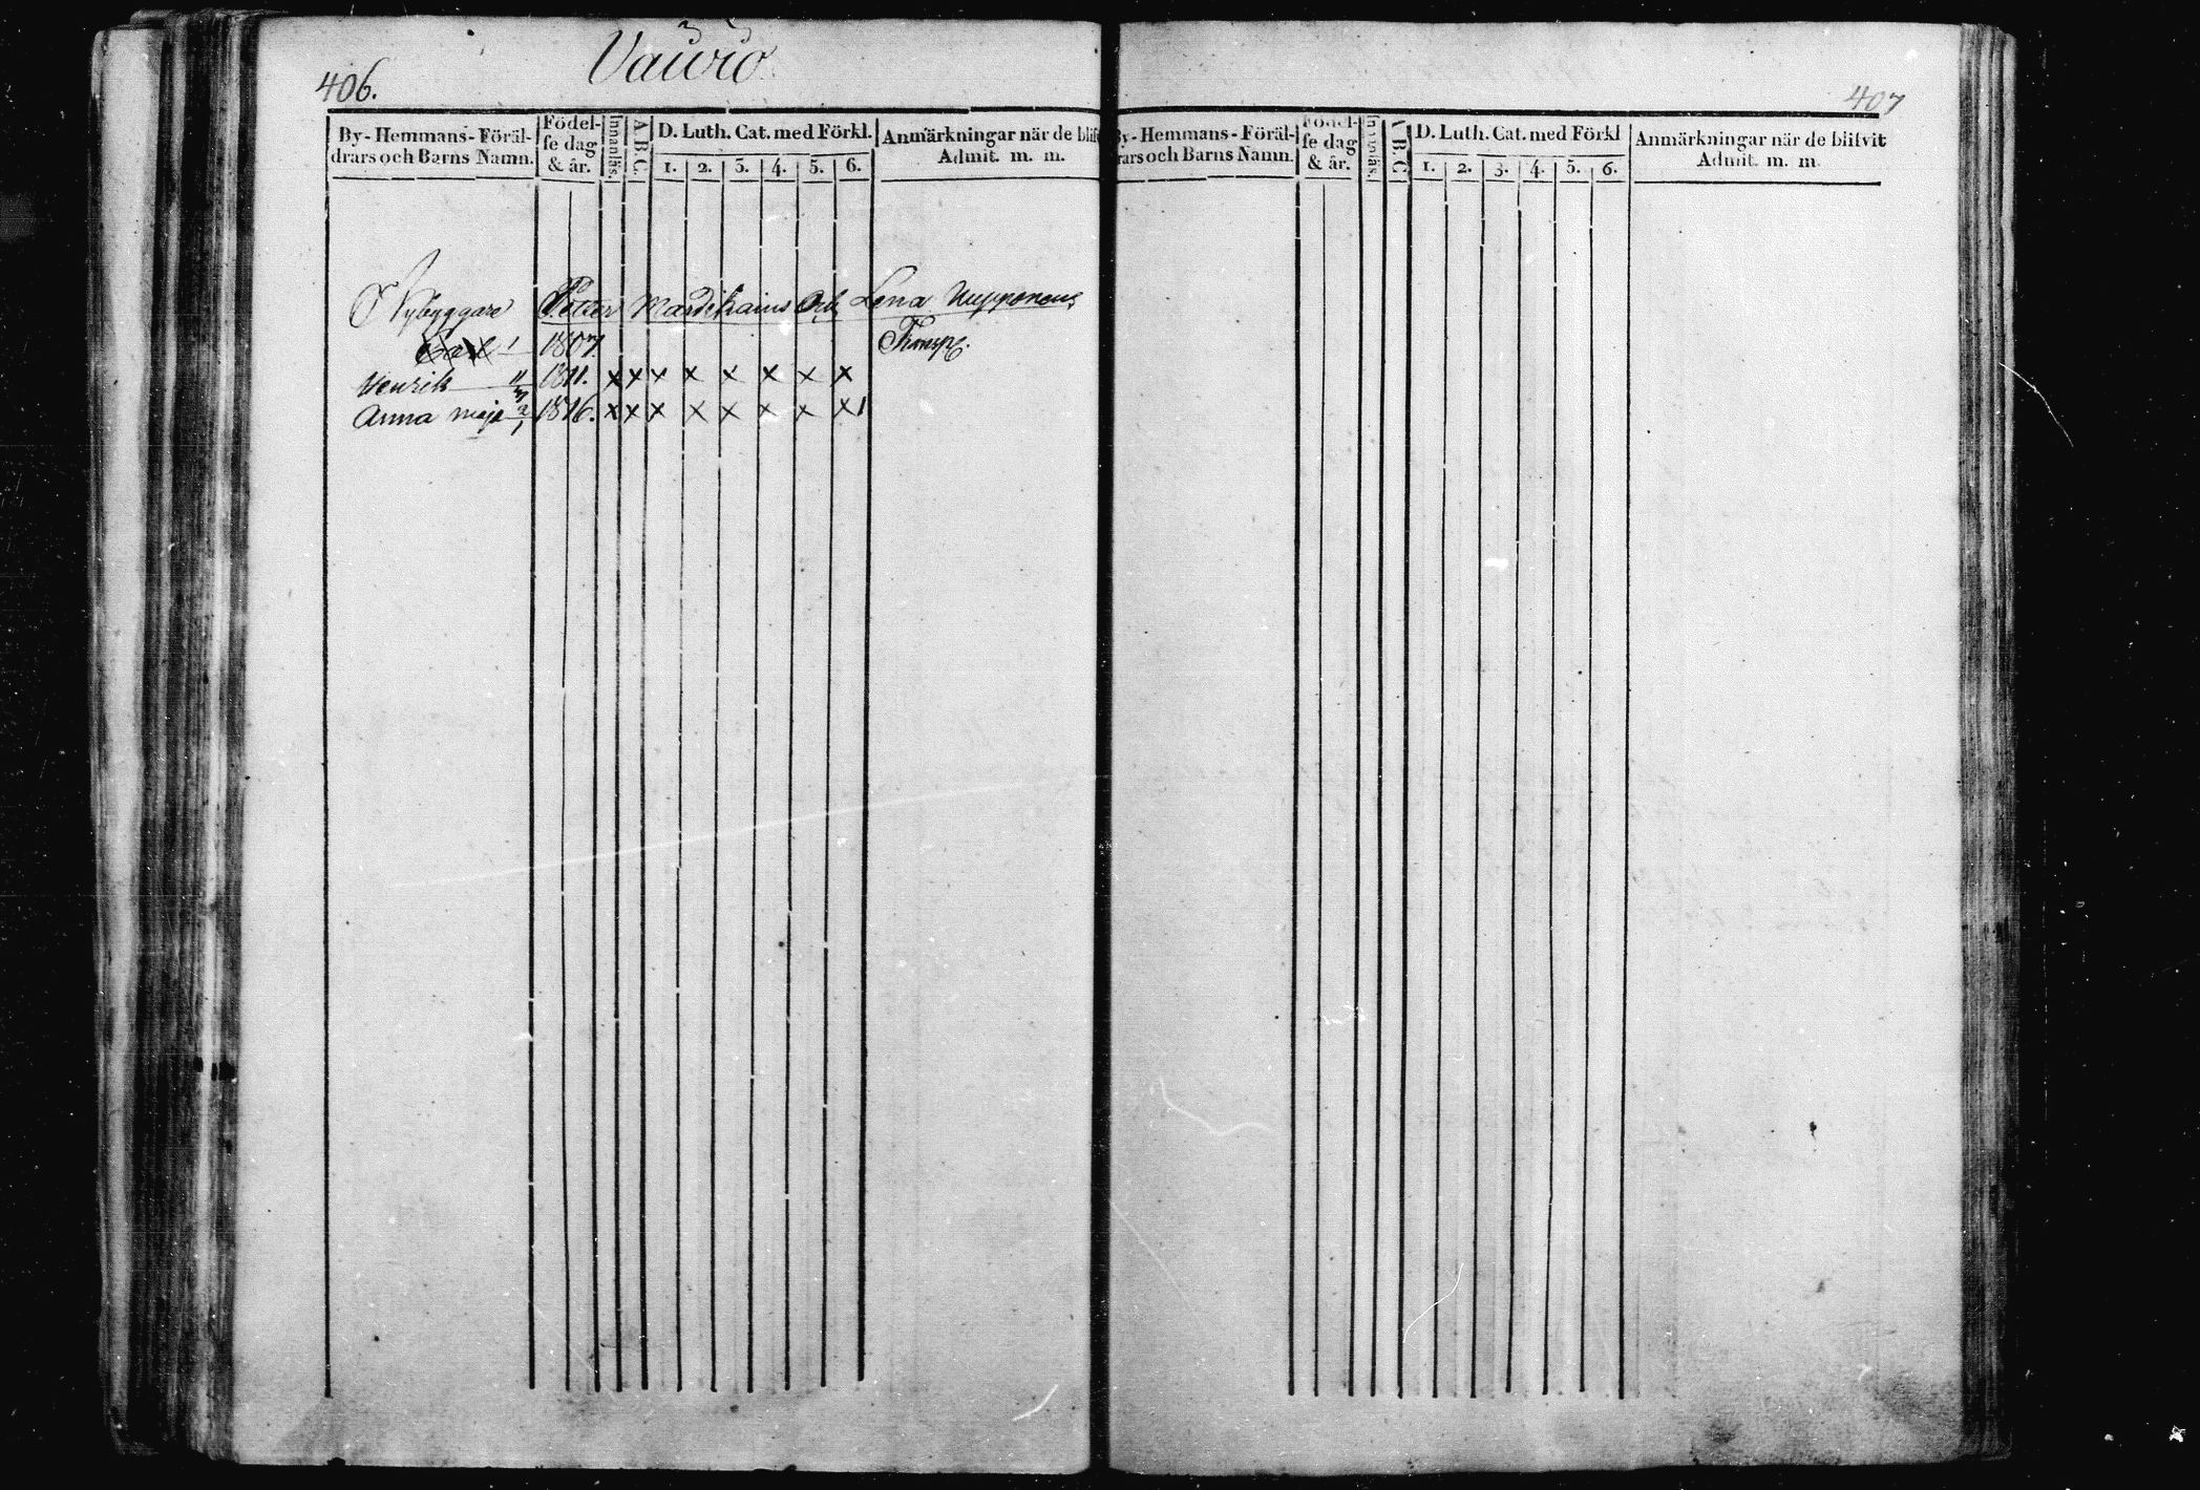 406.
Vaurio
By-Hemmans-Föräl-
drars och Barns Namn.
Födel-
se dag
& år.
Innanläs.
A.B.C.
D. Luth. Cat. med Förkl.
1. 2. 3. 4. 5. 6.
Anmärkningar när de blif
Admit. m. m.
Nybyggare Petter Mardikains Och Lena Nupponens
1 1807. Transp.
Henrik 11/3 1811. x x x x x x x x
Anna Maja 2/1 1816. x x x x x x x x 1
407
By-Hemmans-Föräl-
rars och Barns Namn.
Födel-
se dag
& år.
Innanläs.
A.B.C
D. Luth. Cat. med Förkl
1. 2. 3. 4. 5. 6.
Anmärkningar när de blifvit
Admit. m. m